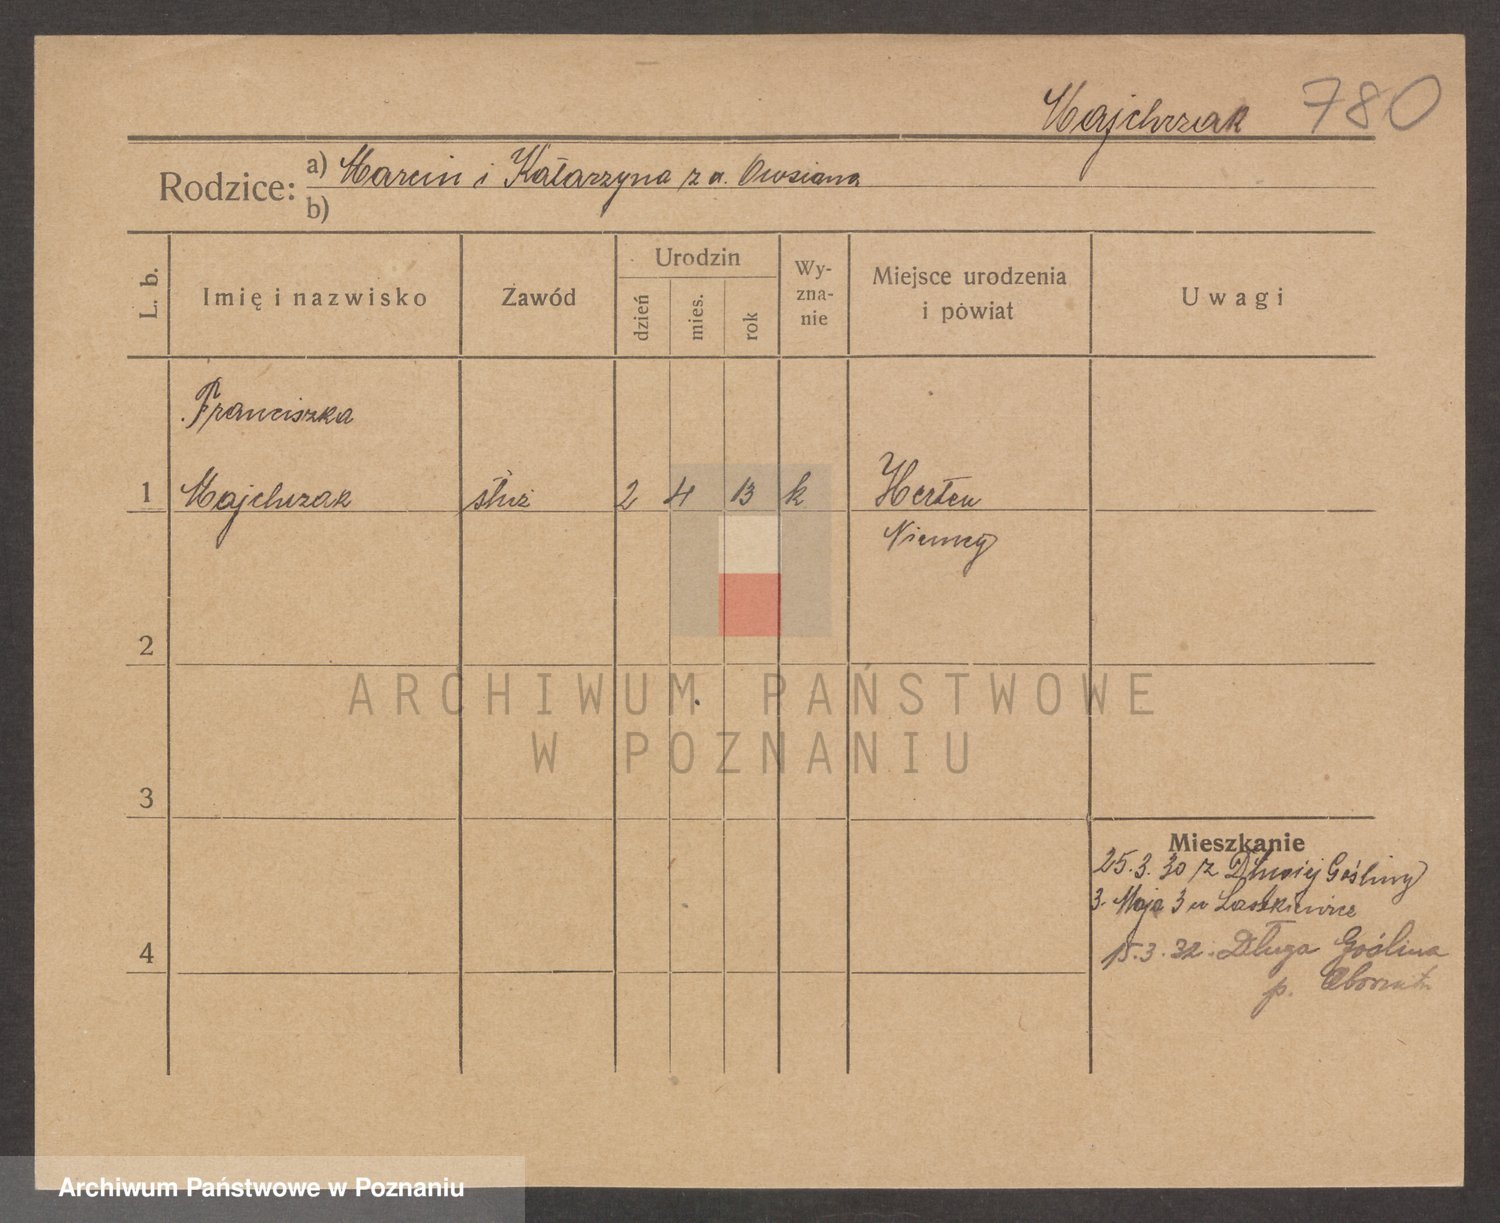 Majchrzak 780
Rodzice: a) Marcin i Katarzyna z d. Owsiana
b)
L. b.
Imię i nazwisko
Zawód
Urodzin
dzień
mies.
rok
Wy-
zna-
nie
Miejsce urodzenia
i powiat
Uwagi
Franciszka
1 Majchrzak służ 2 4 13 k Herten
Niemcy
2
ARCHIWUM PAŃSTWOWE
W POZNANIU
3
Mieszkanie
25.3.30 z Długiej Gośliny
3. Maja 3 u Laskiewicz
4
15.3.32. Długa Goślina
p.
Archiwum Państwowe w Poznaniu